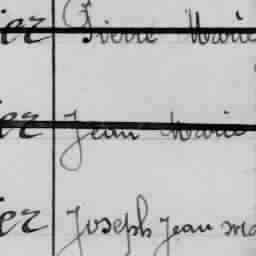 ier Pierre Marie
ier Jean Marie
ier Joseph Jean Ma